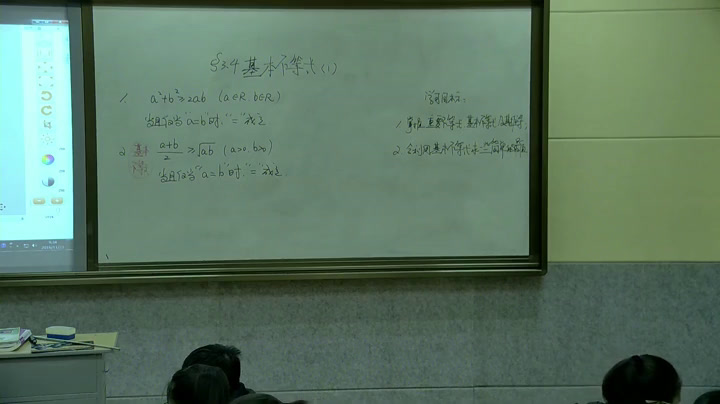 §3.4 基本不等式(1)
1. a²+b²≥2ab (a∈R, b∈R)
当且仅当"a=b"时,"="成立
2. 基本 (a+b)/2 ≥ √ab (a>0, b>0)
当且仅当"a=b"时,"="成立.
学习目标:
1. 重要不等式 基本不等式
2. 会利用基本不等式求一些简单的最值